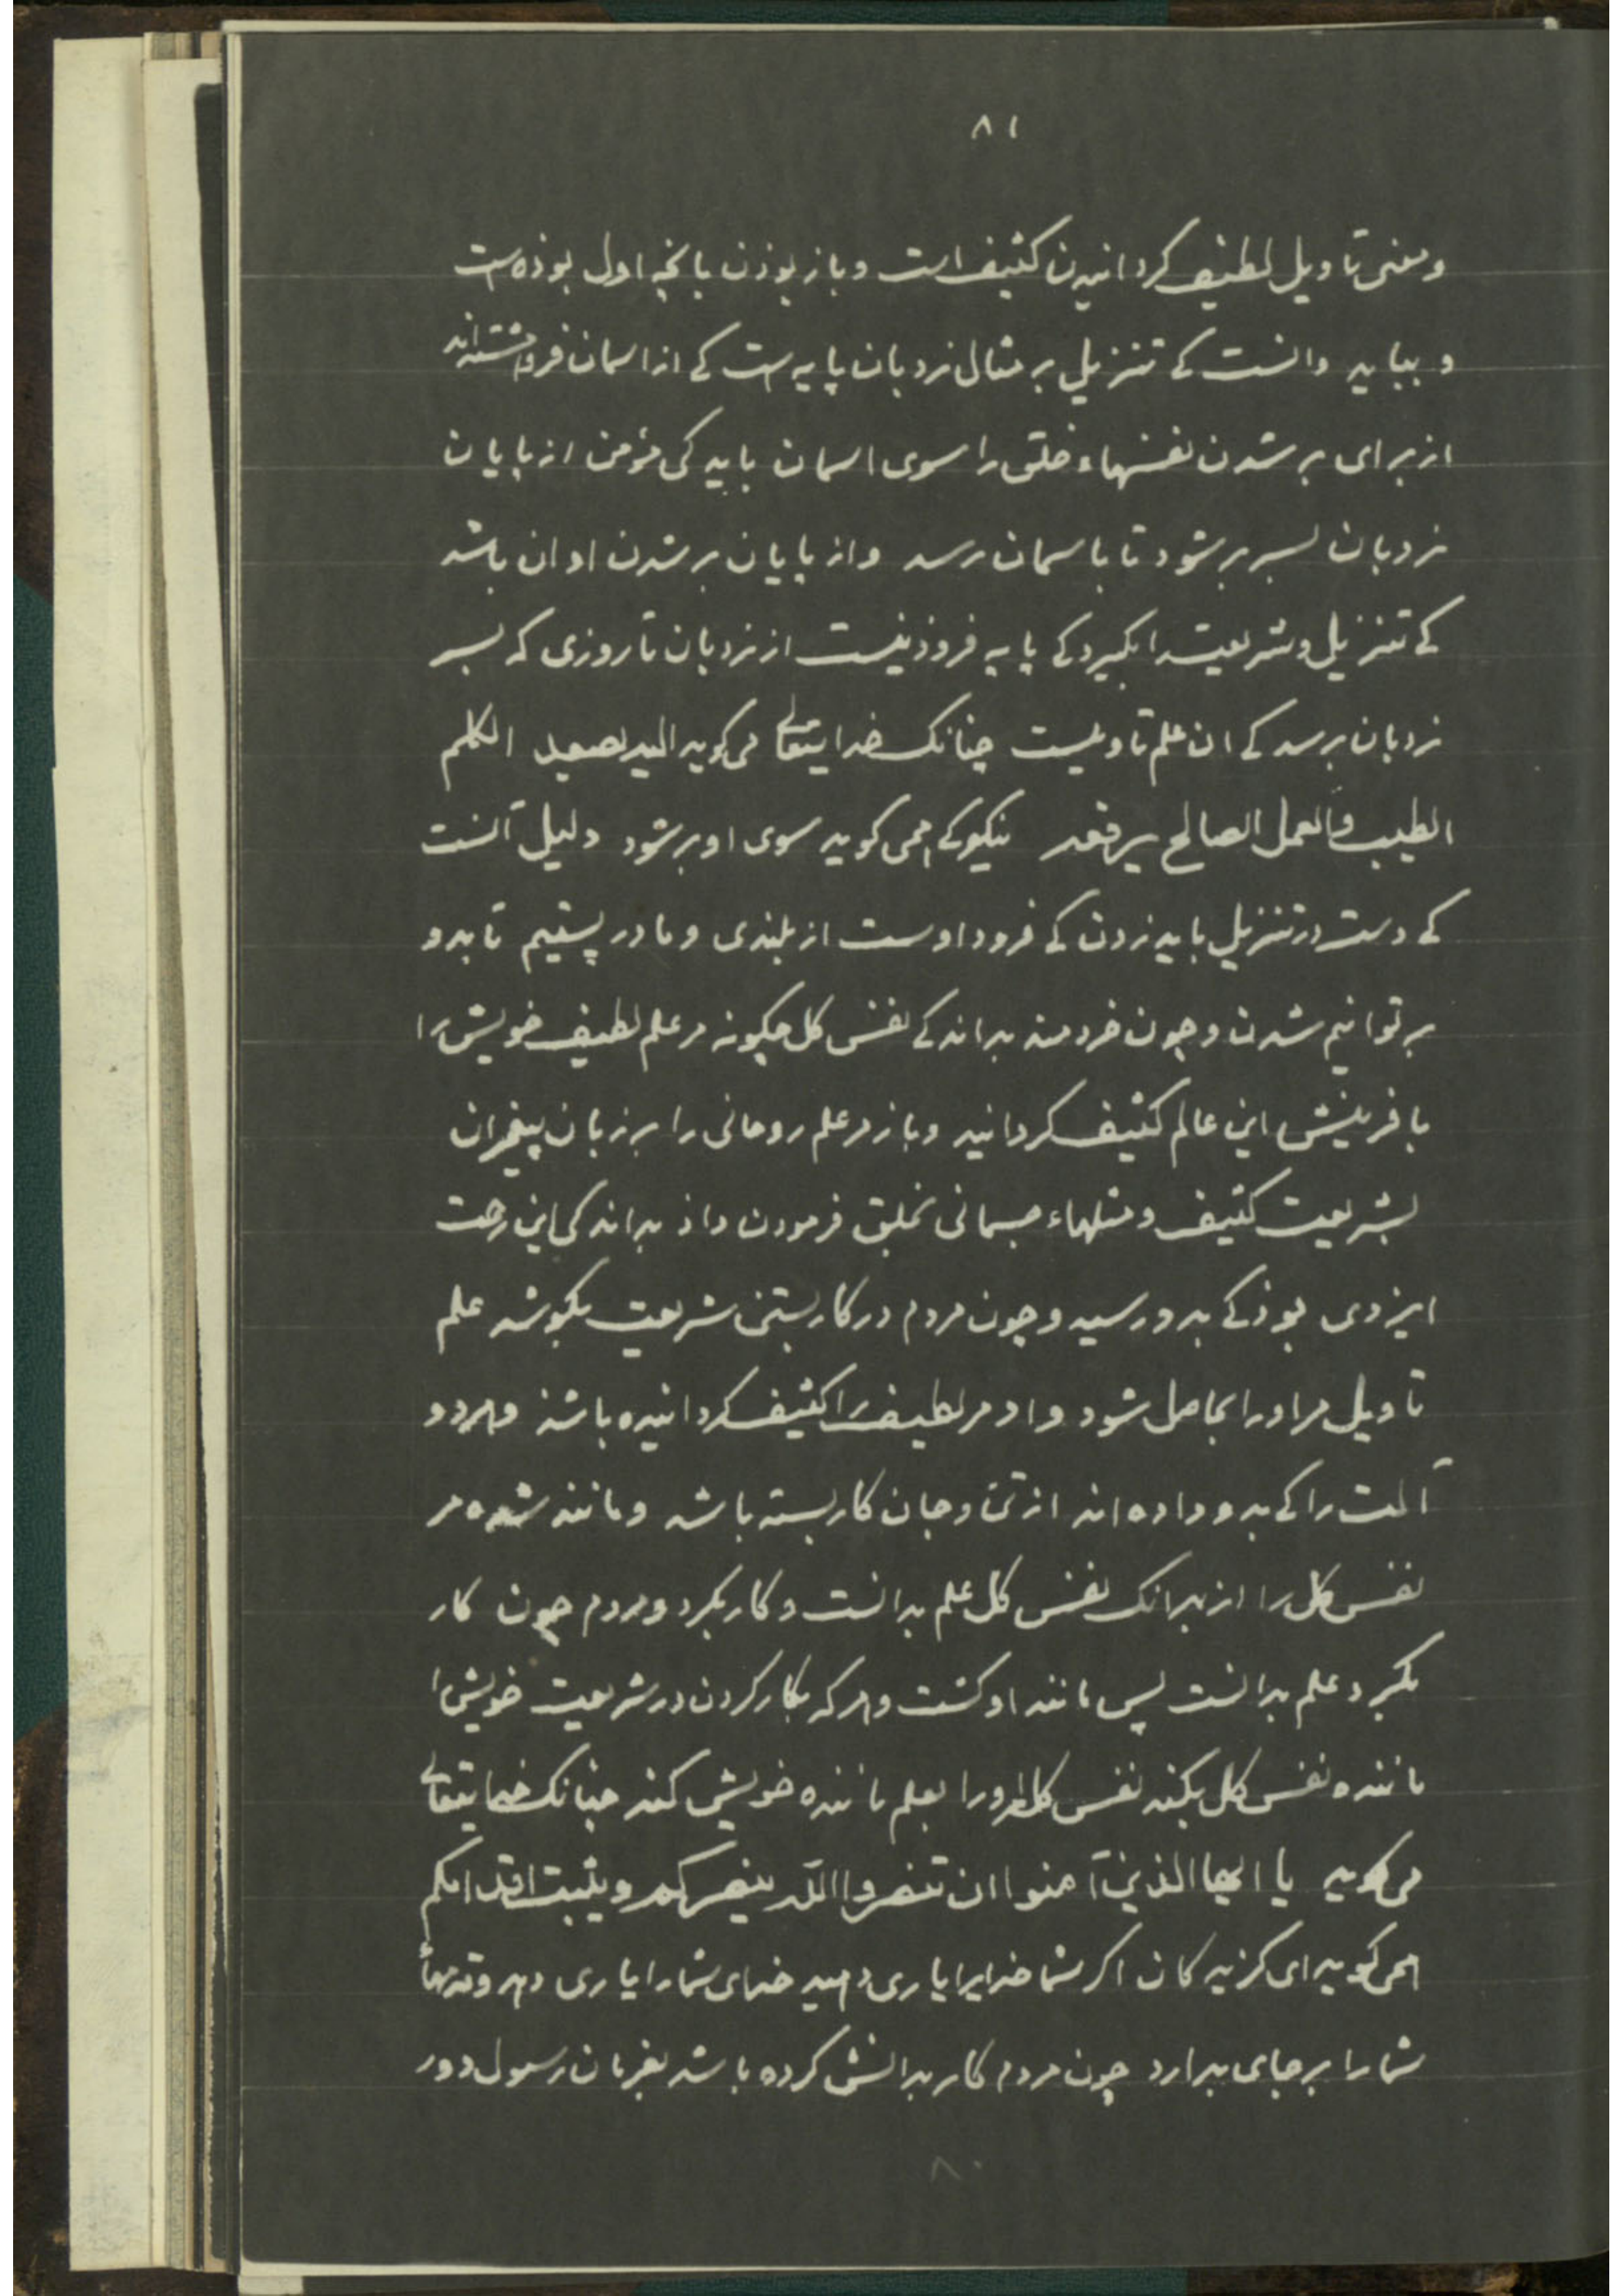 ۸۱
ومعنی تاویل لطیف کردانیدن کثیف است و باز بوذن بانچه اول بوذه است
و بباید دانست کے تنزیل بر مثال نردبان پایه است کے از اسمان فروهشته‌اند
از برای بر شدن نفسهاء خلق را سوی اسمان باید کی مؤمن از پایان
نردبان بسر بر شود تا باسمان رسد و از پایان بر شدن او ان باشد
کے تنزیل و شریعت را بگیرد کے پایه فروذینست از نردبان تا روزی که بسر
نردبان برسد کے ان علم تاویلست چنانک خدایتعالے می کوید الیه یصعید الکلم
الطیب والعمل الصالح یرفعه نیکو کے همی کوید سوی او بر شود دلیل آنست
کے دست در تنزیل باید زدن کے فرود اوست از بلندی و ما در پستیم تا بدو
بر توانیم شدن و چون خردمند بداند کے نفس کل چکونه مر علم لطیف خویش را
بافرینش این عالم کثیف کردانید و باز مر علم روحانی را بر زبان پیغمبران
بشریعت کثیف و مثلهاء جسمانی بخلق فرمودن داذ بداند کی این رحمت
ایزدی بوذ کے بدو رسید و چون مردم در کار بستن شریعت بکوشد علم
تاویل مر او را بحاصل شود و او مر لطیف را کثیف کردانیده باشذ و هر دو
آلت را کے بدو داده اند از تن و جان کار بسته باشد و مانند شده مر
نفس کل را از بهر انک نفس کل علم بدانست و کار بکرد و مردم چون کار
بکرد علم بدانست پس مانند او کشت و هر که بکار کردن در شریعت خویش را
ماننده نفس کل بکند نفس کل مر او را بعلم ماننده خویش کند چنانک خدایتعالے
می کوید یا ایها الذین آمنوا ان تنصروا الله ینصرکم ویثبت اقدامکم
همی کوید ای کزیدکان اکر شما خدایرا یاری دهید خدای شما را یاری دهد و قدمهاء
شما را بر جای بدارد چون مردم کار بدانش کرده باشد بفرمان رسول دور
۸۰